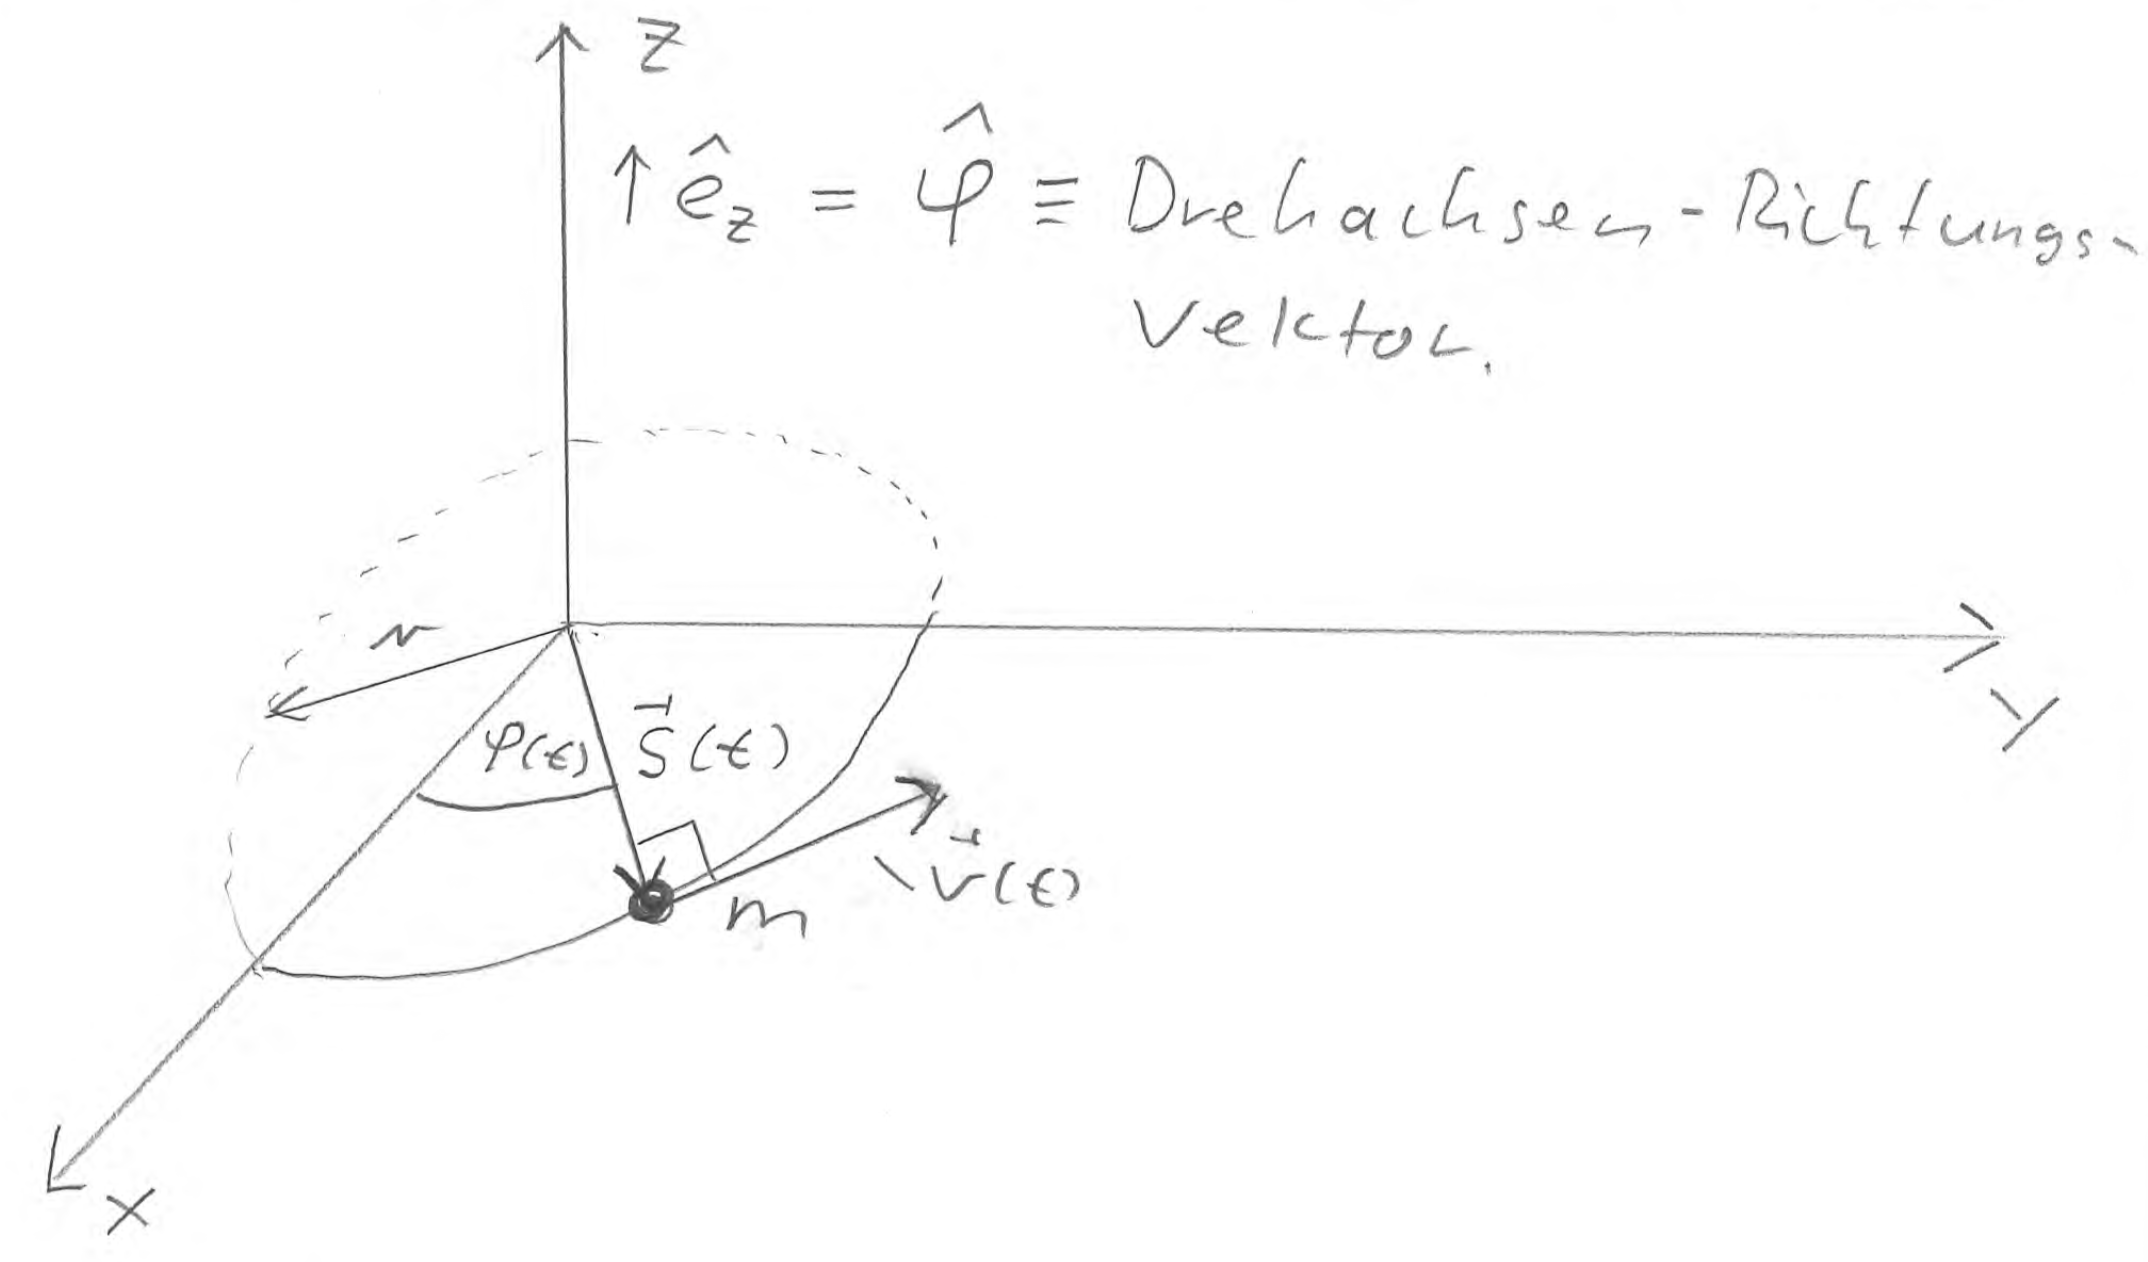 Z
↑ ê_z = φ̂ ≡ Drehachsen-Richtungs-
Vektor.
r
φ(t)
s⃗(t)
v⃗(t)
m
y
x